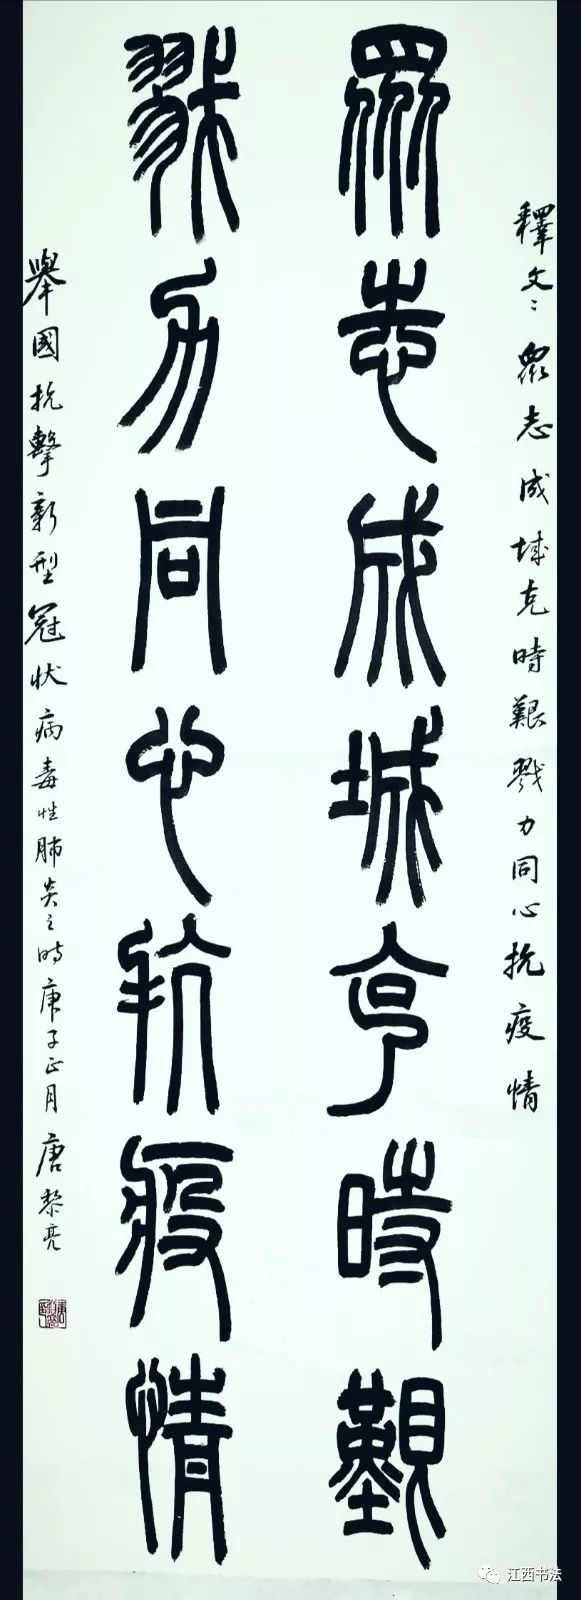 釋文：眾志成城克時艱戮力同心抗疫情
眾志成城克時艱
戮力同心抗疫情
舉國抗擊新型冠狀病毒性肺炎之時庚子正月唐黎亮
江西书法